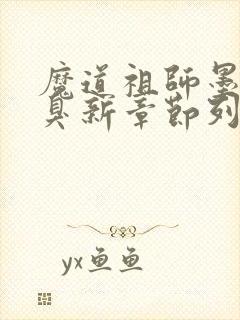 魔道祖師墨
臭新章節列
yx鱼鱼